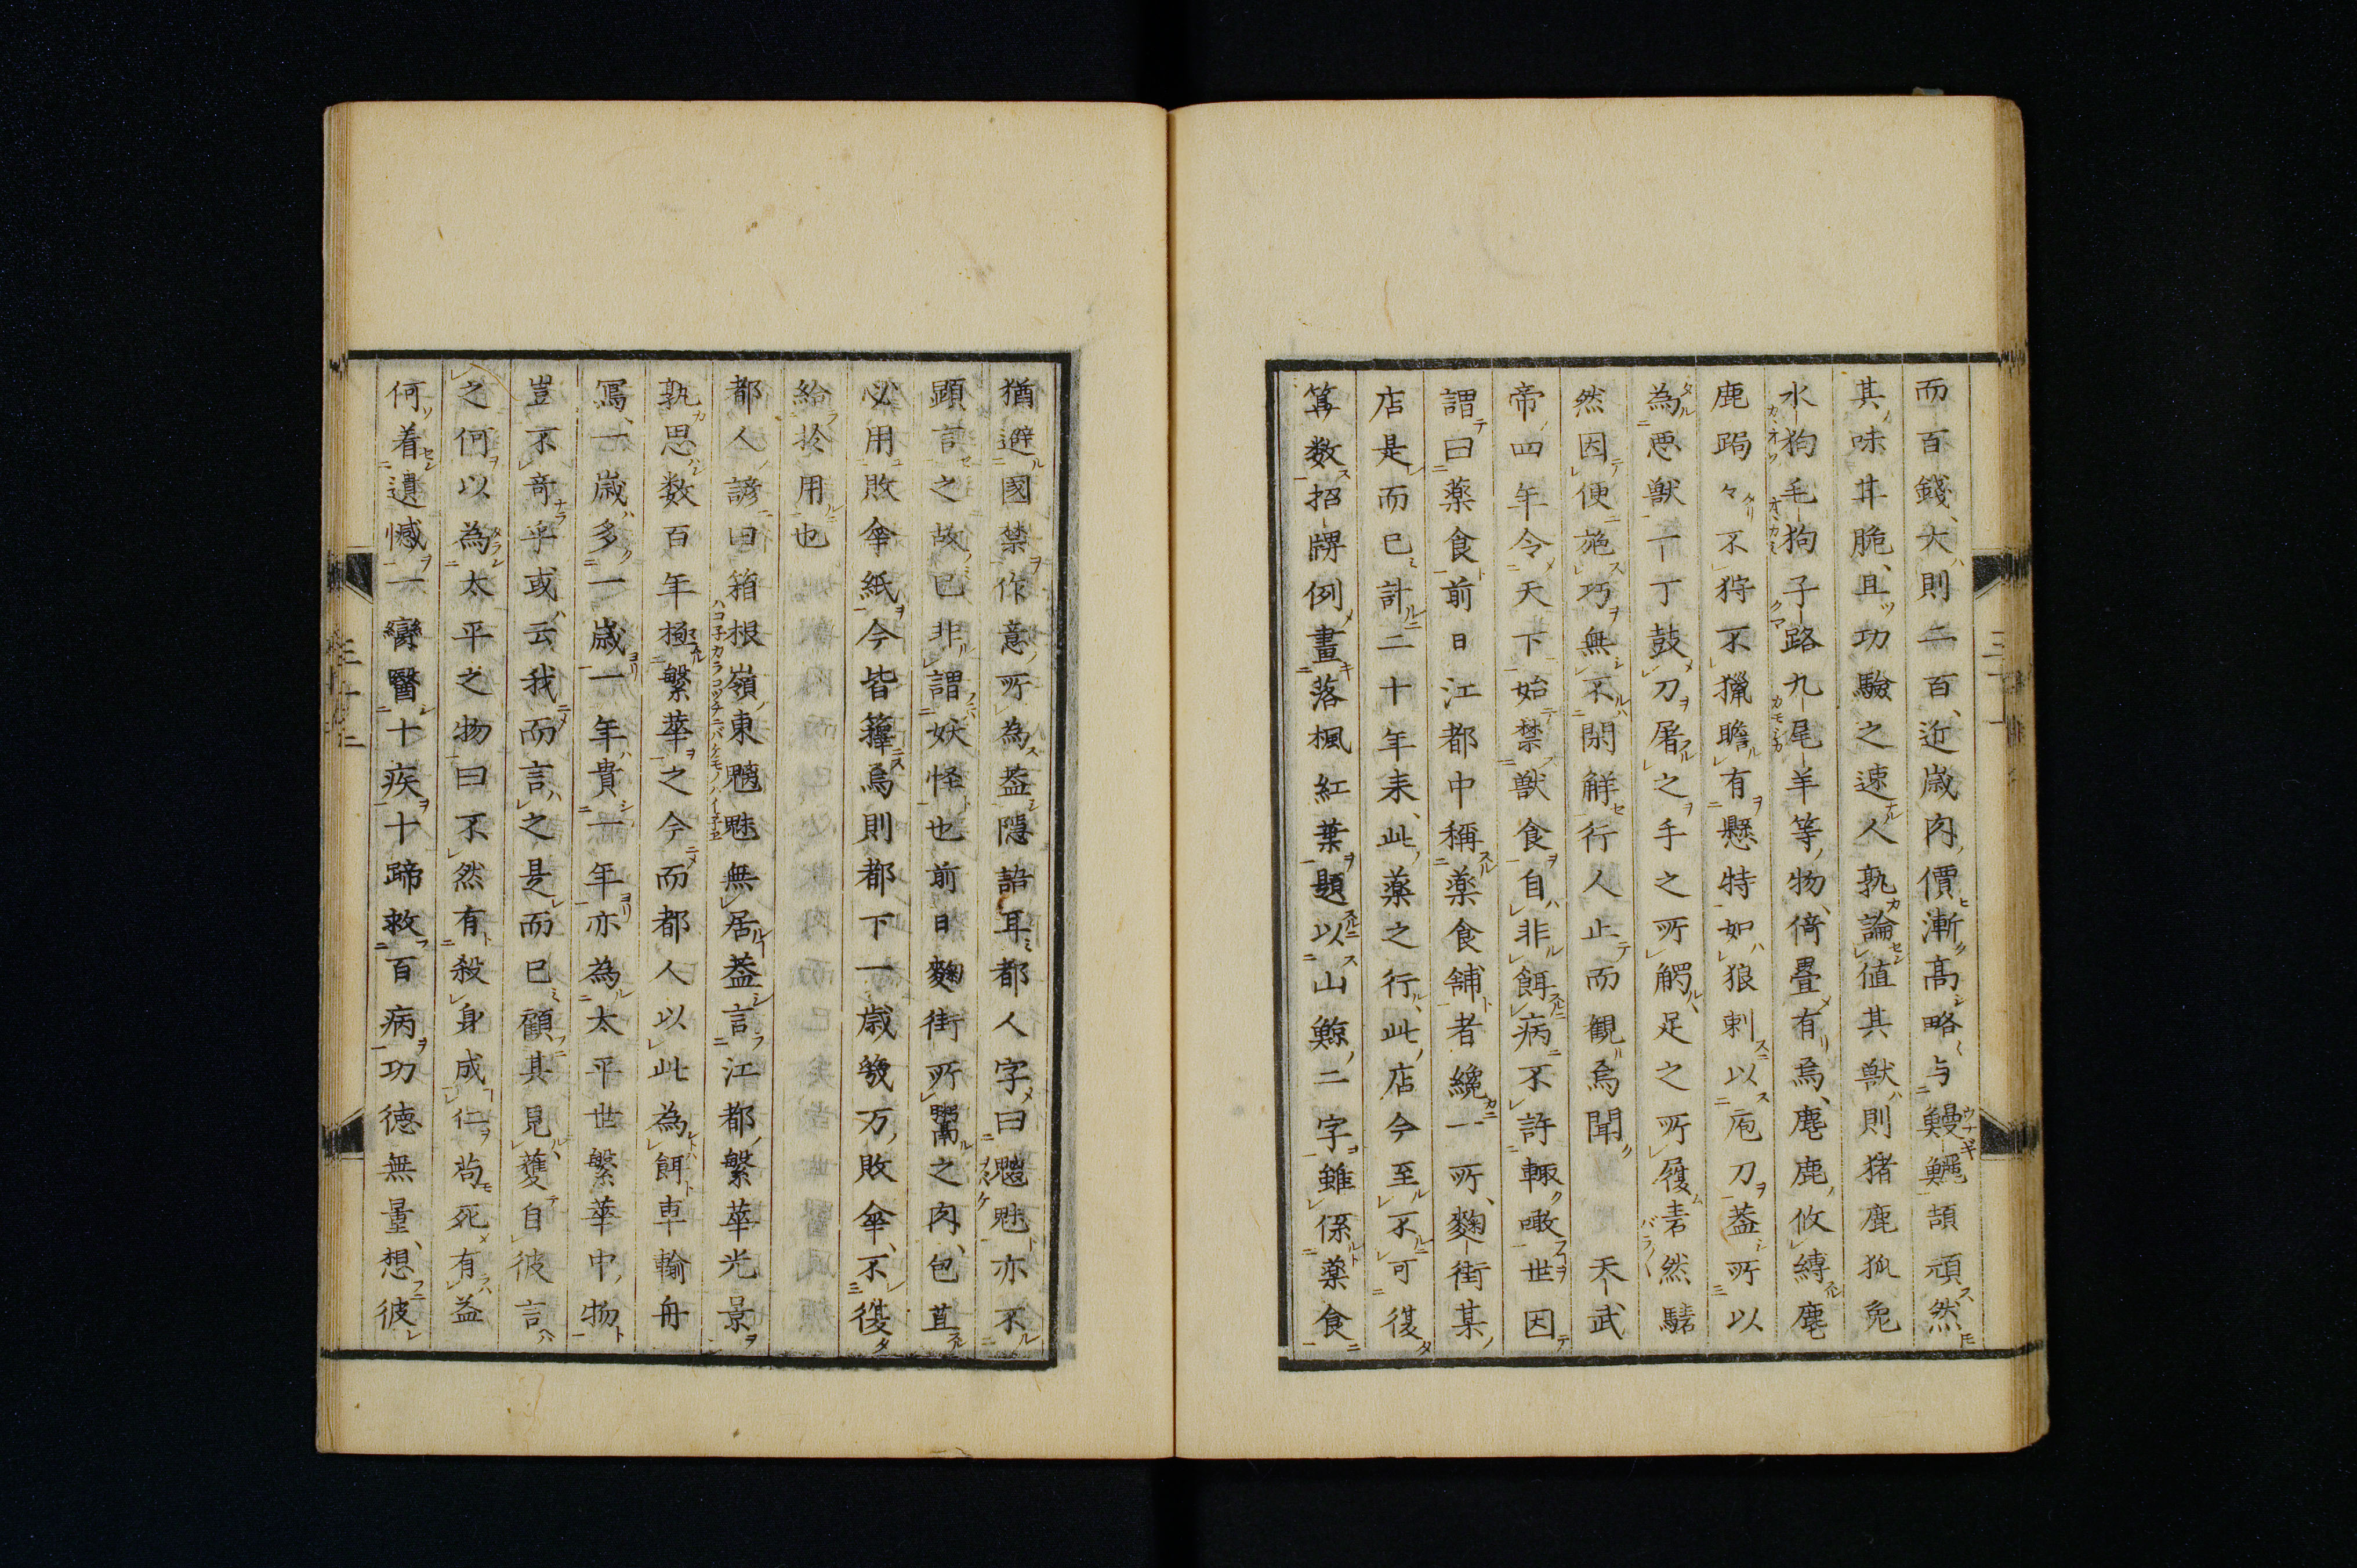 而百錢、大則二百、近歳肉價漸高略与鰻鱺頡頏然
其味丼脆、且功驗之速人孰論値其獣則猪鹿狐兎
水狗毛狗子路九尾羊等物、倚疊有焉、麀鹿攸縛麀
鹿跼々不狩不獵瞻有懸特如狼剌以庖刀葢所以
為悪獣一丁鼓刀屠之手之所觸足之所履砉然騞
然因便施巧無不閑觧行人止而観焉聞 天武
帝四年令天下始禁獣食自非餌病不許輙噉世因
謂曰薬食前日江都中稱薬食舗者纔一所、麹街某
店是而已計二十年来、此薬之行此店今至不可復
筭数招牌例畫落楓紅葉題以山鯨二字雖係薬食
猶避國禁作意所為葢隠語耳都人字曰魑魅亦不
顕言之故已非謂妖怪也前日麹街所鬻之肉、包苴
必用敗傘紙今皆籜焉則都下一歳幾万敗傘、不復
給於用也
都人諺曰箱根嶺東魑魅無居葢言江都繁華光景
孰思数百年極繁華之今而都人以此為餌車輪舟
寫、一歳多一歳一年貴一年亦為太平世繁華中物
豈不奇乎或云我而言之是而已顧其見獲自彼言
之何以為太平之物曰不然有殺身成仁苟死有益
何着遺憾一臠醫十疾十蹄救百病功徳無量、想彼
三十一
三十二